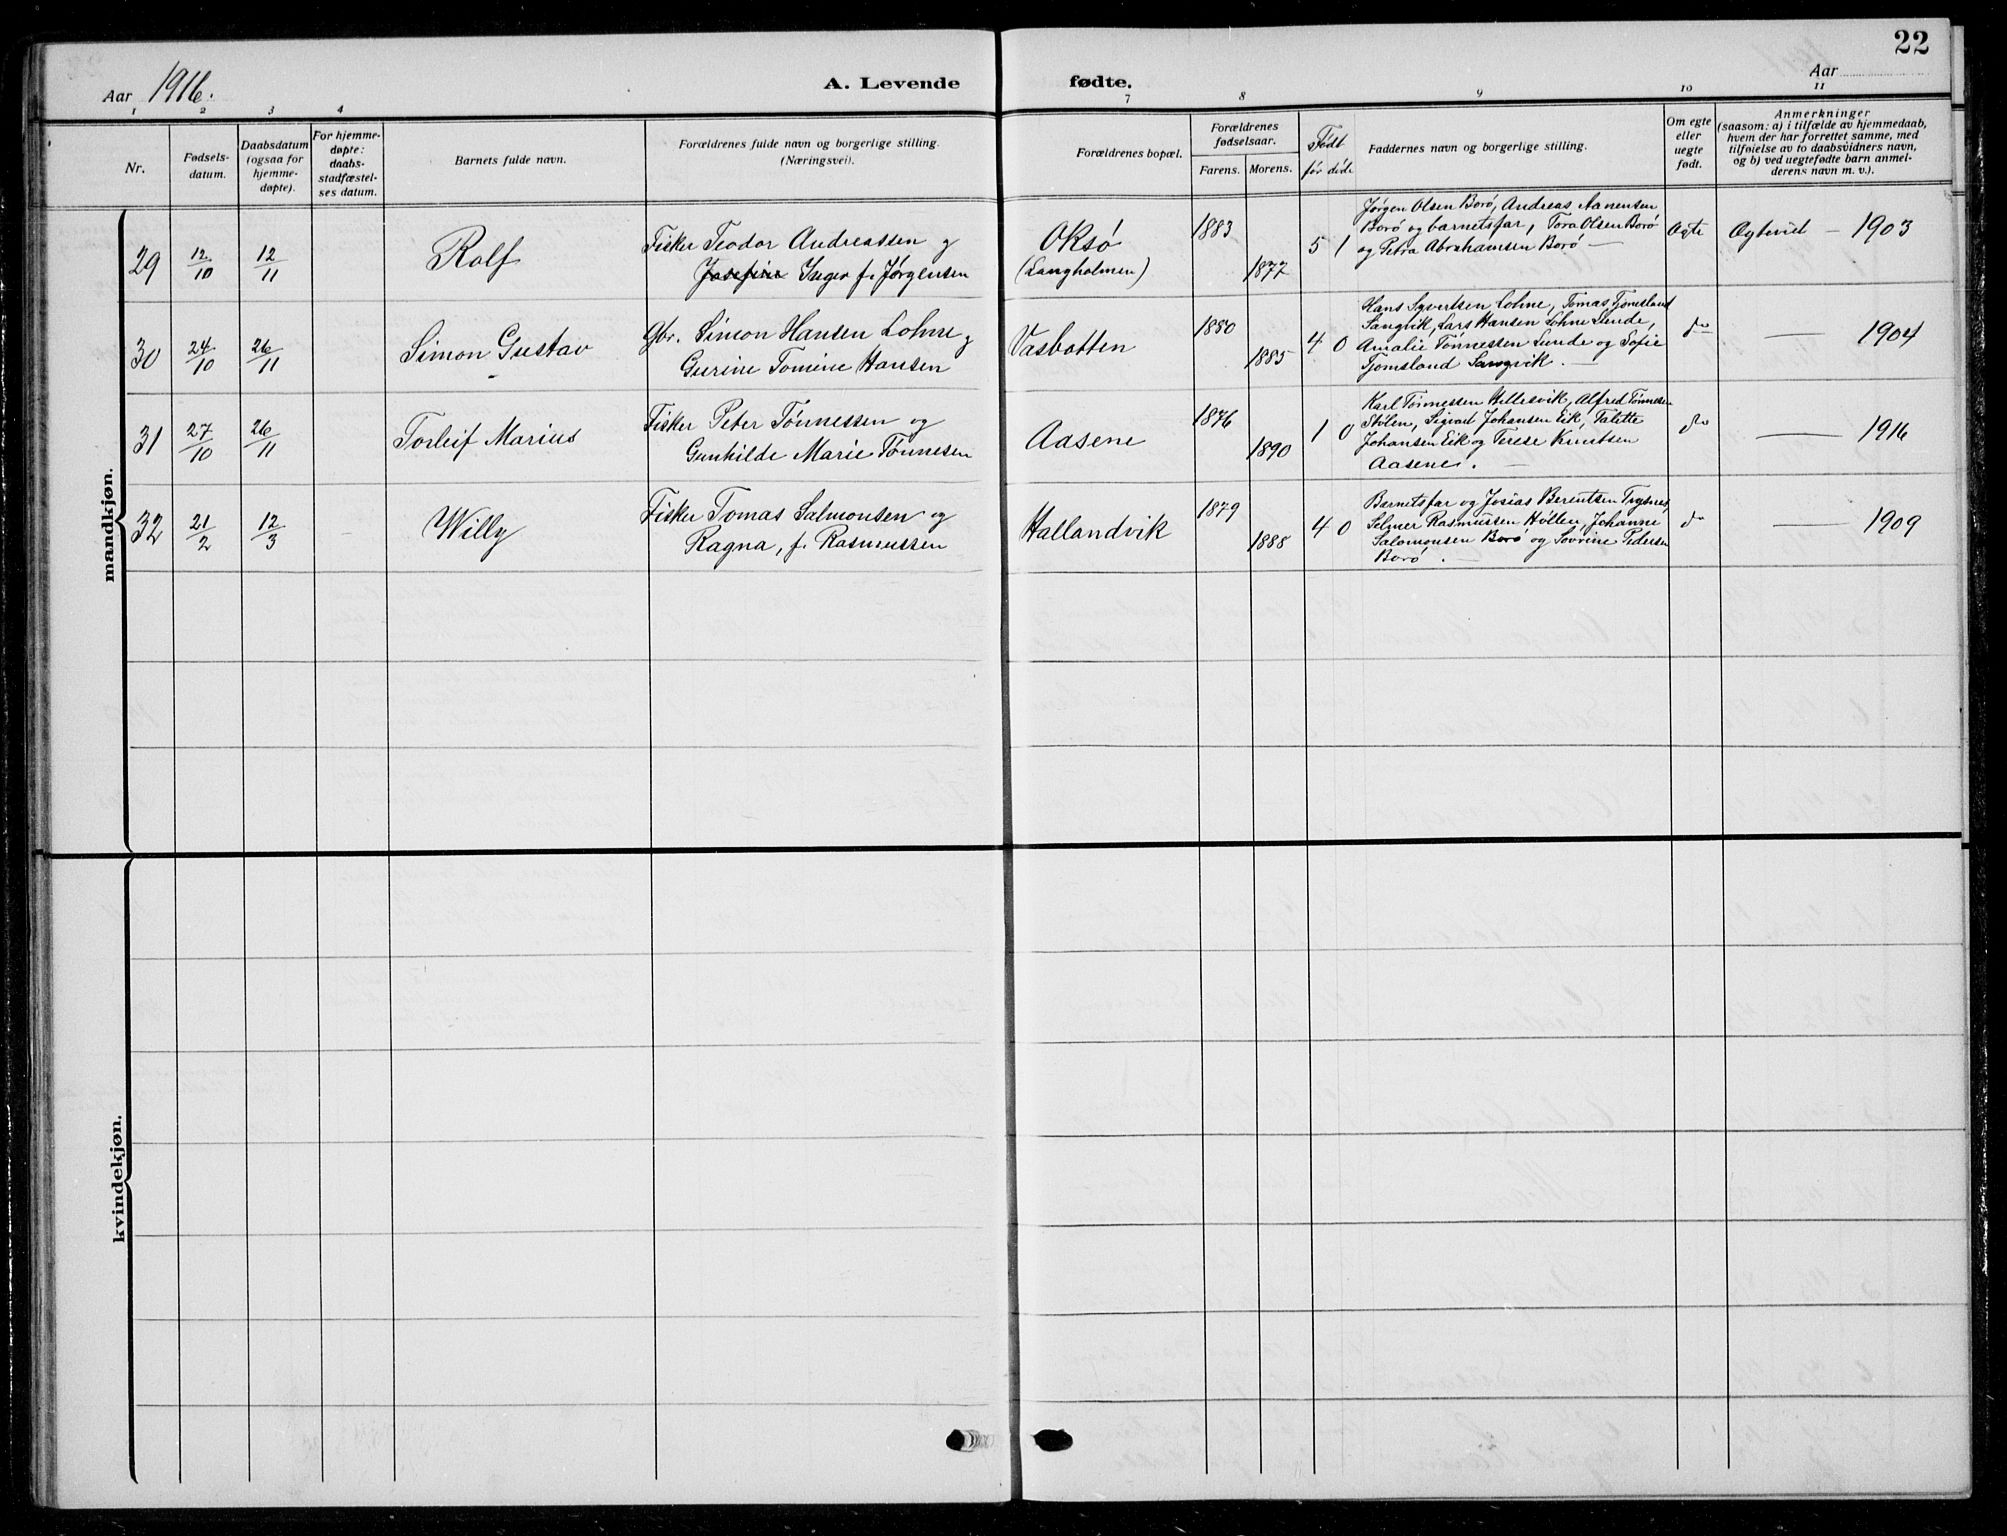 22
Aar 1916. A. Levende fødte. Aar
1 2 3 4 7 8 9 10 11
Nr.
Fødsels-
datum.
Daabsdatum
(ogsaa for
hjemme-
døpte).
For hjemme-
døpte:
daabs-
stadfæstel-
ses datum.
Barnets fulde navn.
Forældrenes fulde navn og borgerlige stilling.
(Næringsvei).
Forældrenes bopæl.
Forældrenes
fødselsaar.
Farens. Morens.
Født
før døde
Faddernes navn og borgerlige stilling.
Om egte
eller
uegte
født.
Anmerkninger
(saasom: a) i tilfælde av hjemmedaab,
hvem der har forrettet samme, med
tilføielse av to daabsvidners navn,
og b) ved uegtefødte barn anmel-
derens navn m. v.).
mandkjøn.
29 12/10 12/11 Rolf
Fisker Teodor Andreassen og
Josefine Inger f. Jørgensen
Oksø
(Langholmen)
1883 1877 5 1
Jørgen Olsen Borø, Andreas Aanensen
Borø og barnetsfar, Tora Olsen Borø
og Petra Abrahamsen Borø —
Ægte Ægtevid — 1903
30 24/10 26/11 Simon Gustav
Gbr. Simon Hansen Lohne og
Gurine Tomine Hansen
Vasbotten
1880 1885 4 0
Hans Syvertsen Lohne, Tomas Tjomsland
Sangvik, Lars Hansen Lohne Lunde,
Amalie Tønnessen Lunde og Sofie
Tjomsland Sangvik. —
do — 1904
31 27/10 26/11 Torleif Marius
Fisker Peter Tønnessen og
Gunhilde Marie Tønnesen
Aasene
1876 1890 1 0
Karl Tønnessen Hillesvik, Alfred Tønnesen
Stølen, Sigvad Johansen Eik, Talette
Johansen Eik og Terese Knutsen
Aasene. —
do — 1916
32 21/2 12/3 Willy
Fisker Tomas Salmonsen og
Ragna, f. Rasmussen
Hallandvik
1879 1888 4 0
Barnetsfar og Josias Berentsen Trysnes,
Selmer Rasmussen Høllen, Johanne
Salomonsen Borø og Sovrine Pedersen
Borø. —
do — 1909
kvindekjøn.